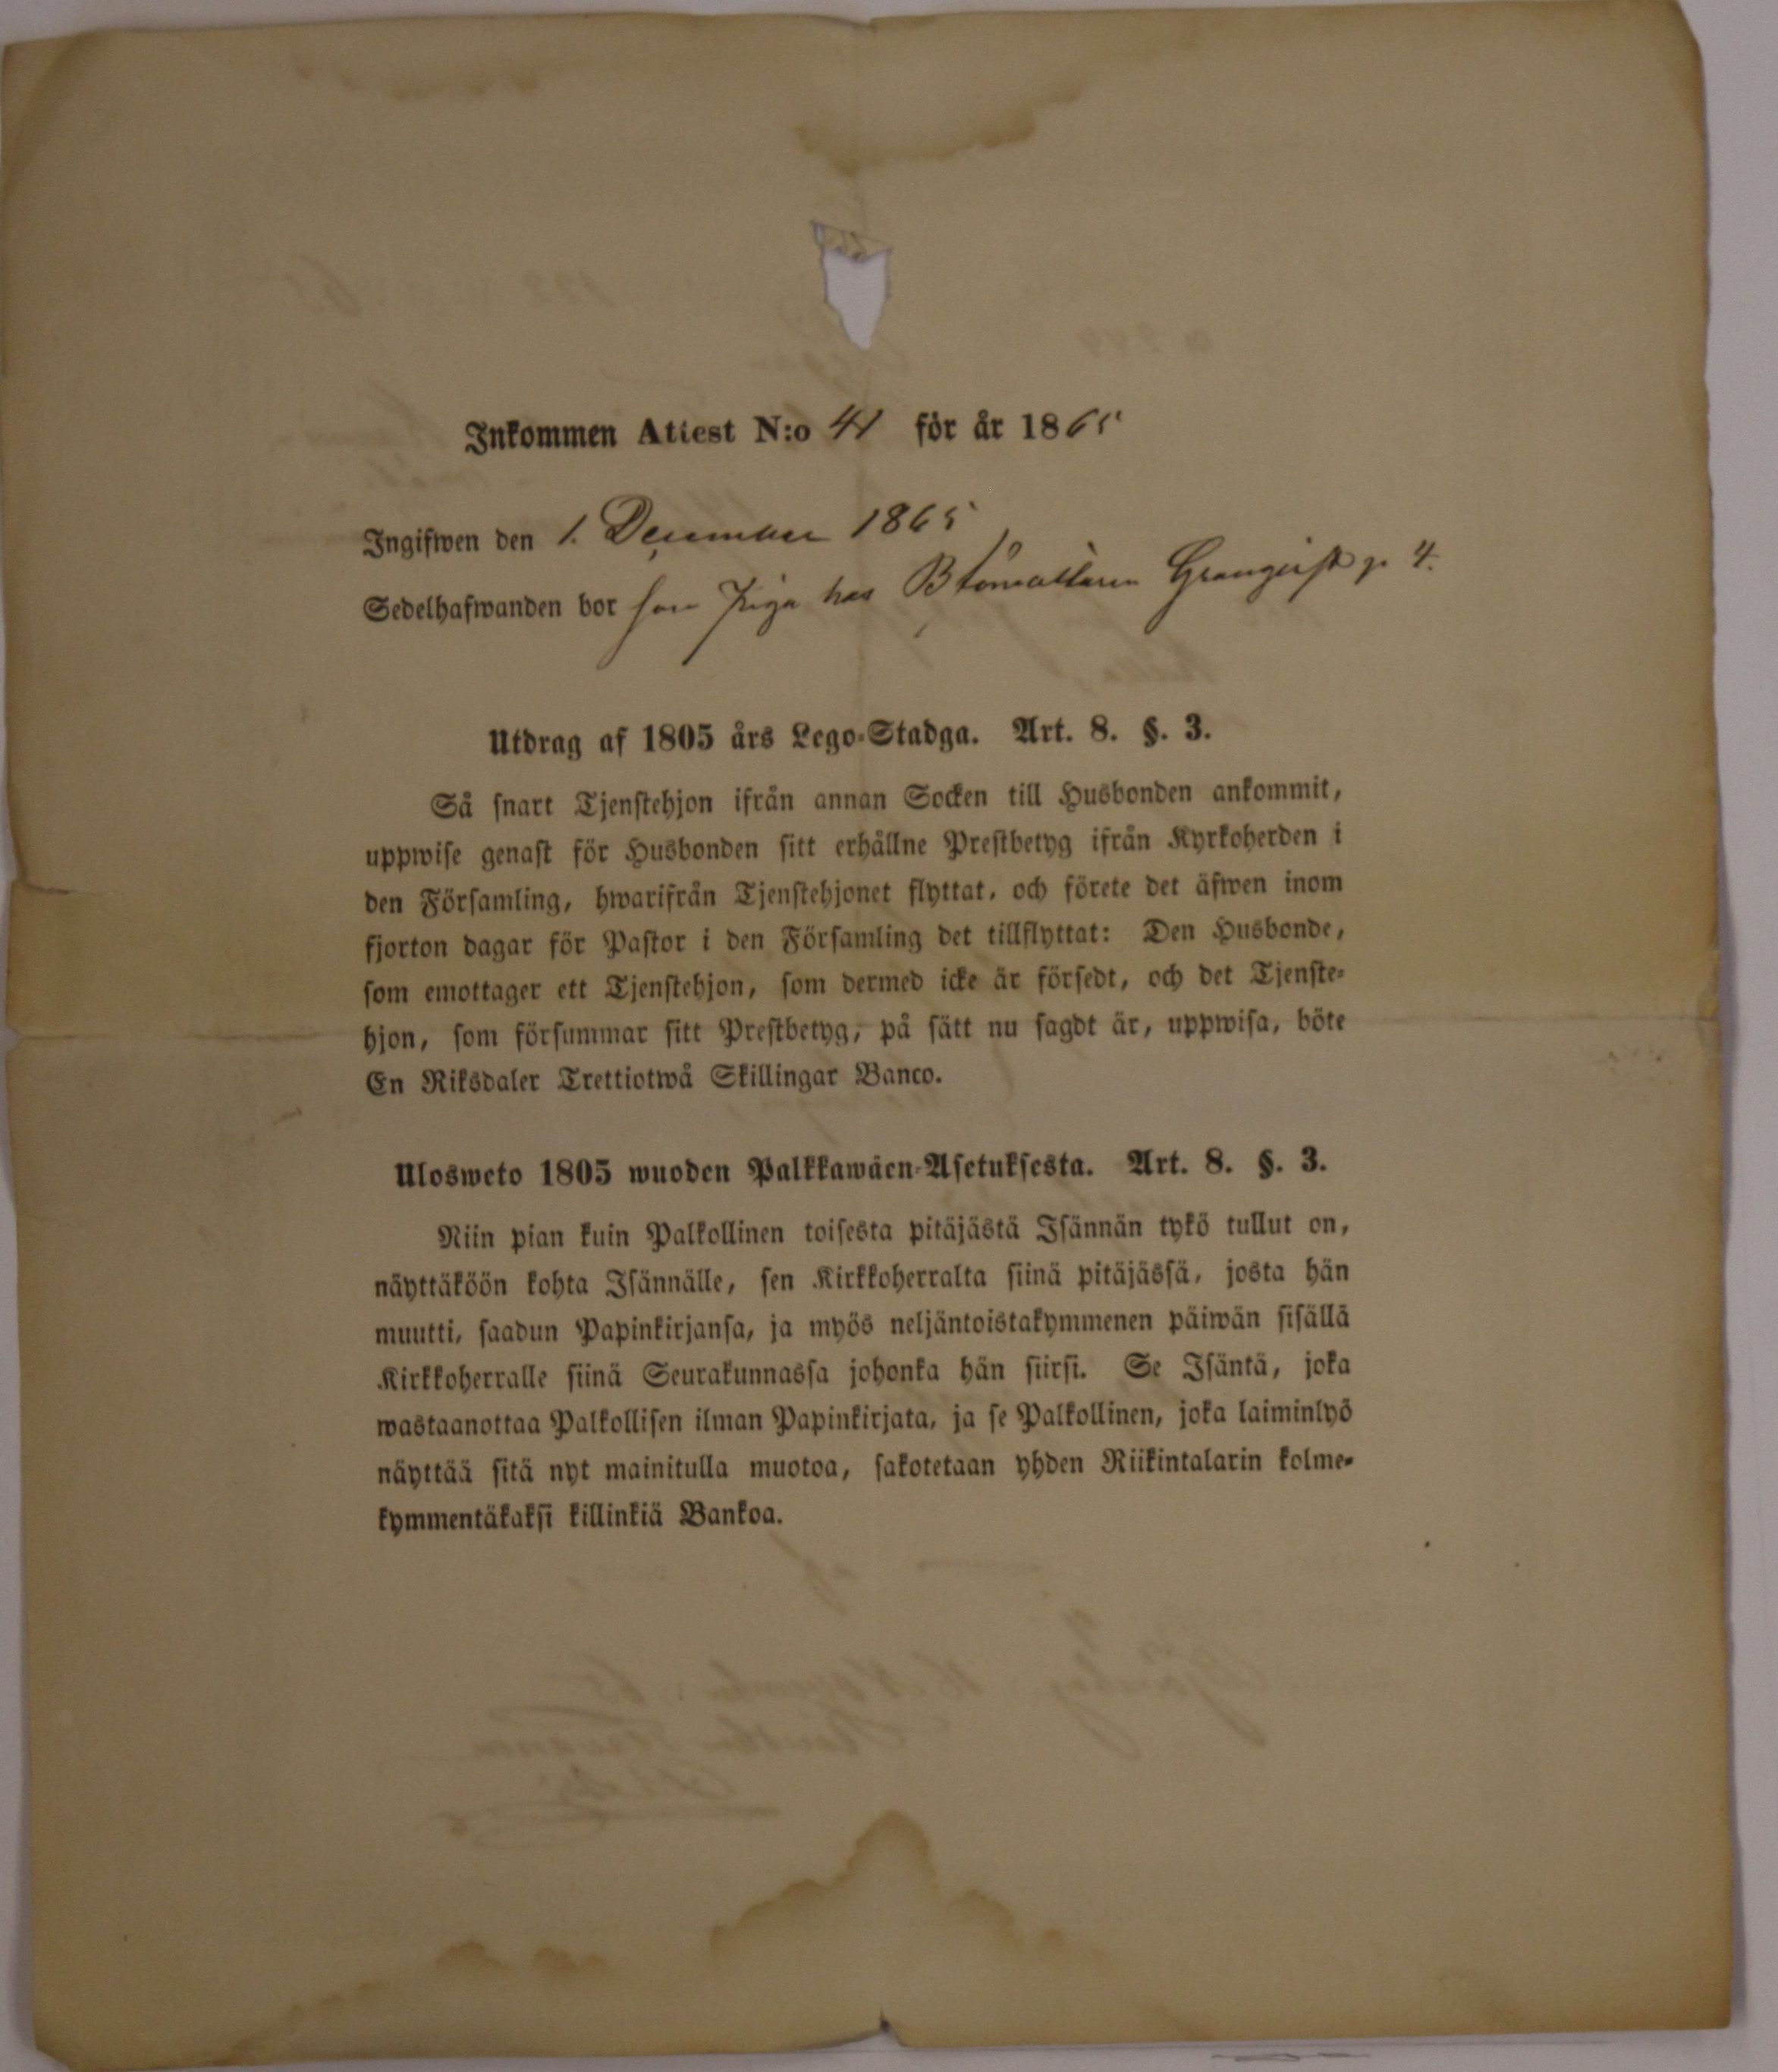 Inkommen Attest N:o 41 för år 1865
Ingifwen den 1. December 1865
Sedelhafwanden bor som Piga hos Granqvist p. 4.
Utdrag af 1805 års Lego-Stadga. Art. 8. §. 3.
Så snart Tjenstehjon ifrån annan Socken till Husbonden ankommit,
uppwise genast för Husbonden sitt erhållne Prestbetyg ifrån Kyrkoherden i
den Församling, hwarifrån Tjenstehjonet flyttat, och förete det äfwen inom
fjorton dagar för Pastor i den Församling det tillflyttat: Den Husbonde,
som emottager ett Tjenstehjon, som dermed icke är försedt, och det Tjenste-
hjon, som försummar sitt Prestbetyg, på sätt nu sagdt är, uppwisa, böte
En Riksdaler Trettiotwå Skillingar Banco.
Ulosweto 1805 wuoden Palkkawäen-Asetuksesta. Art. 8. §. 3.
Niin pian kuin Palkollinen toisesta pitäjästä Isännän tykö tullut on,
näyttäköön kohta Isännälle, sen Kirkkoherralta siinä pitäjässä, josta hän
muutti, saadun Papinkirjansa, ja myös neljäntoistakymmenen päiwän sisällä
Kirkkoherralle siinä Seurakunnassa johonka hän siirsi. Se Isäntä, joka
wastaanottaa Palkollisen ilman Papinkirjata, ja se Palkollinen, joka laiminlyö
näyttää sitä nyt mainitulla muotoa, sakotetaan yhden Riikintalarin kolme-
kymmentäkaksi killinkiä Bankoa.